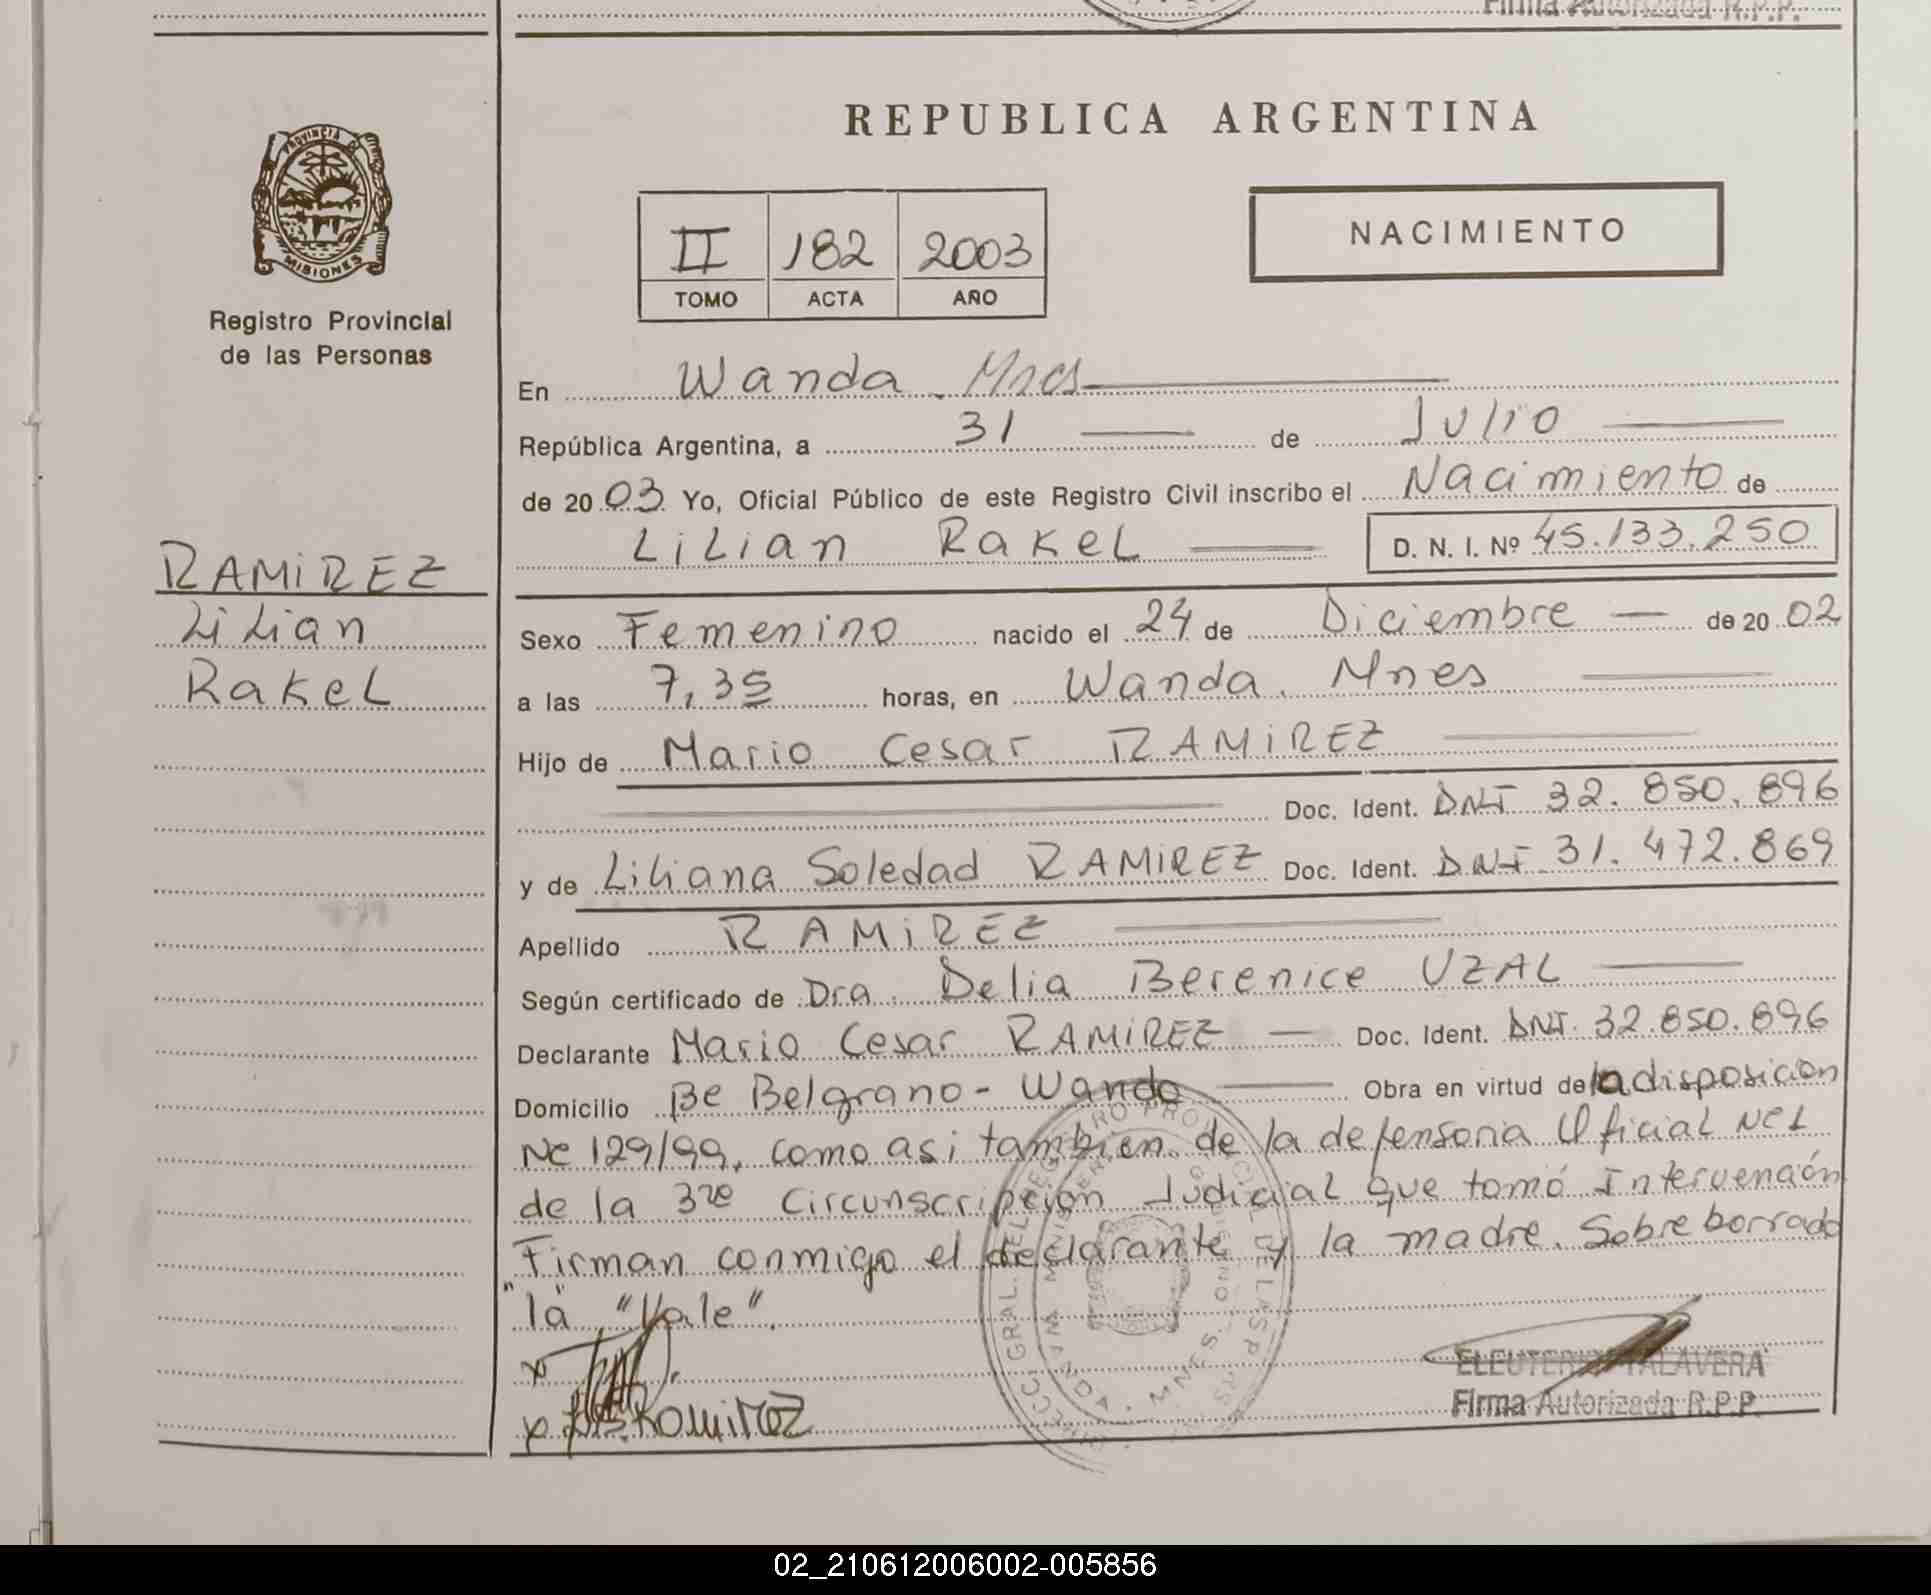 Firma Autorizada R.P.P.
REPUBLICA ARGENTINA
PROVINCIA DE
MISIONES
Registro Provincial
de las Personas
II 182 2003
TOMO ACTA AÑO
NACIMIENTO
En Wanda. Mnes
República Argentina, a 31 de Julio
de 20 03 Yo, Oficial Público de este Registro Civil inscribo el Nacimiento de
Lilian Rakel D. N. I. Nº 45.133.250
RAMIREZ
Lilian
Rakel
Sexo Femenino nacido el 24 de Diciembre de 20 02
a las 7,35 horas, en Wanda. Mnes
Hijo de Mario Cesar RAMIREZ
Doc. Ident. DNI 32.850.896
y de Liliana Soledad RAMIREZ Doc. Ident. DNI 31.472.869
Apellido RAMIREZ
Según certificado de Dra. Delia Berenice UZAL
Declarante Mario Cesar RAMIREZ Doc. Ident. DNI. 32.850.896
Domicilio Bº Belgrano - Wanda Obra en virtud de la disposicion
Nº 129/99, como asi tambien de la defensoria Oficial Nº 1
de la 3ra Circunscripción Judicial que tomó Intervención
Firman conmigo el declarante y la madre. Sobreborrado
"la" "Vale".
x
x Ramirez
ELEUTERIO TALAVERA
Firma Autorizada R.P.P.
02_210612006002-005856